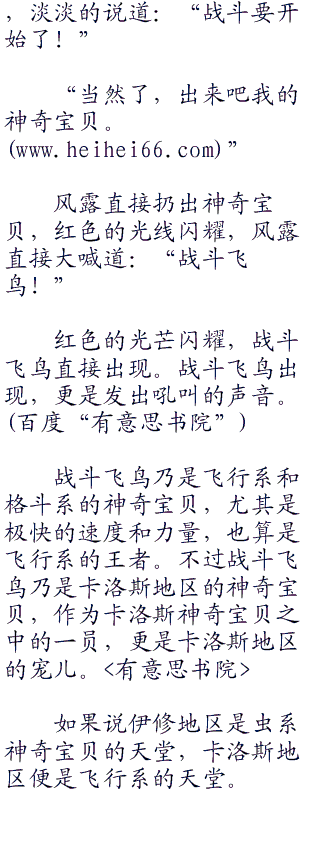 ，淡淡的说道：“战斗要开
始了！”
“当然了，出来吧我的
神奇宝贝。
(www.heihei66.com)”
风露直接扔出神奇宝
贝，红色的光线闪耀，风露
直接大喊道：“战斗飞
鸟！”
红色的光芒闪耀，战斗
飞鸟直接出现。战斗飞鸟出
现，更是发出吼叫的声音。
(百度“有意思书院”)
战斗飞鸟乃是飞行系和
格斗系的神奇宝贝，尤其是
极快的速度和力量，也算是
飞行系的王者。不过战斗飞
鸟乃是卡洛斯地区的神奇宝
贝，作为卡洛斯神奇宝贝之
中的一员，更是卡洛斯地区
的宠儿。<有意思书院>
如果说伊修地区是虫系
神奇宝贝的天堂，卡洛斯地
区便是飞行系的天堂。